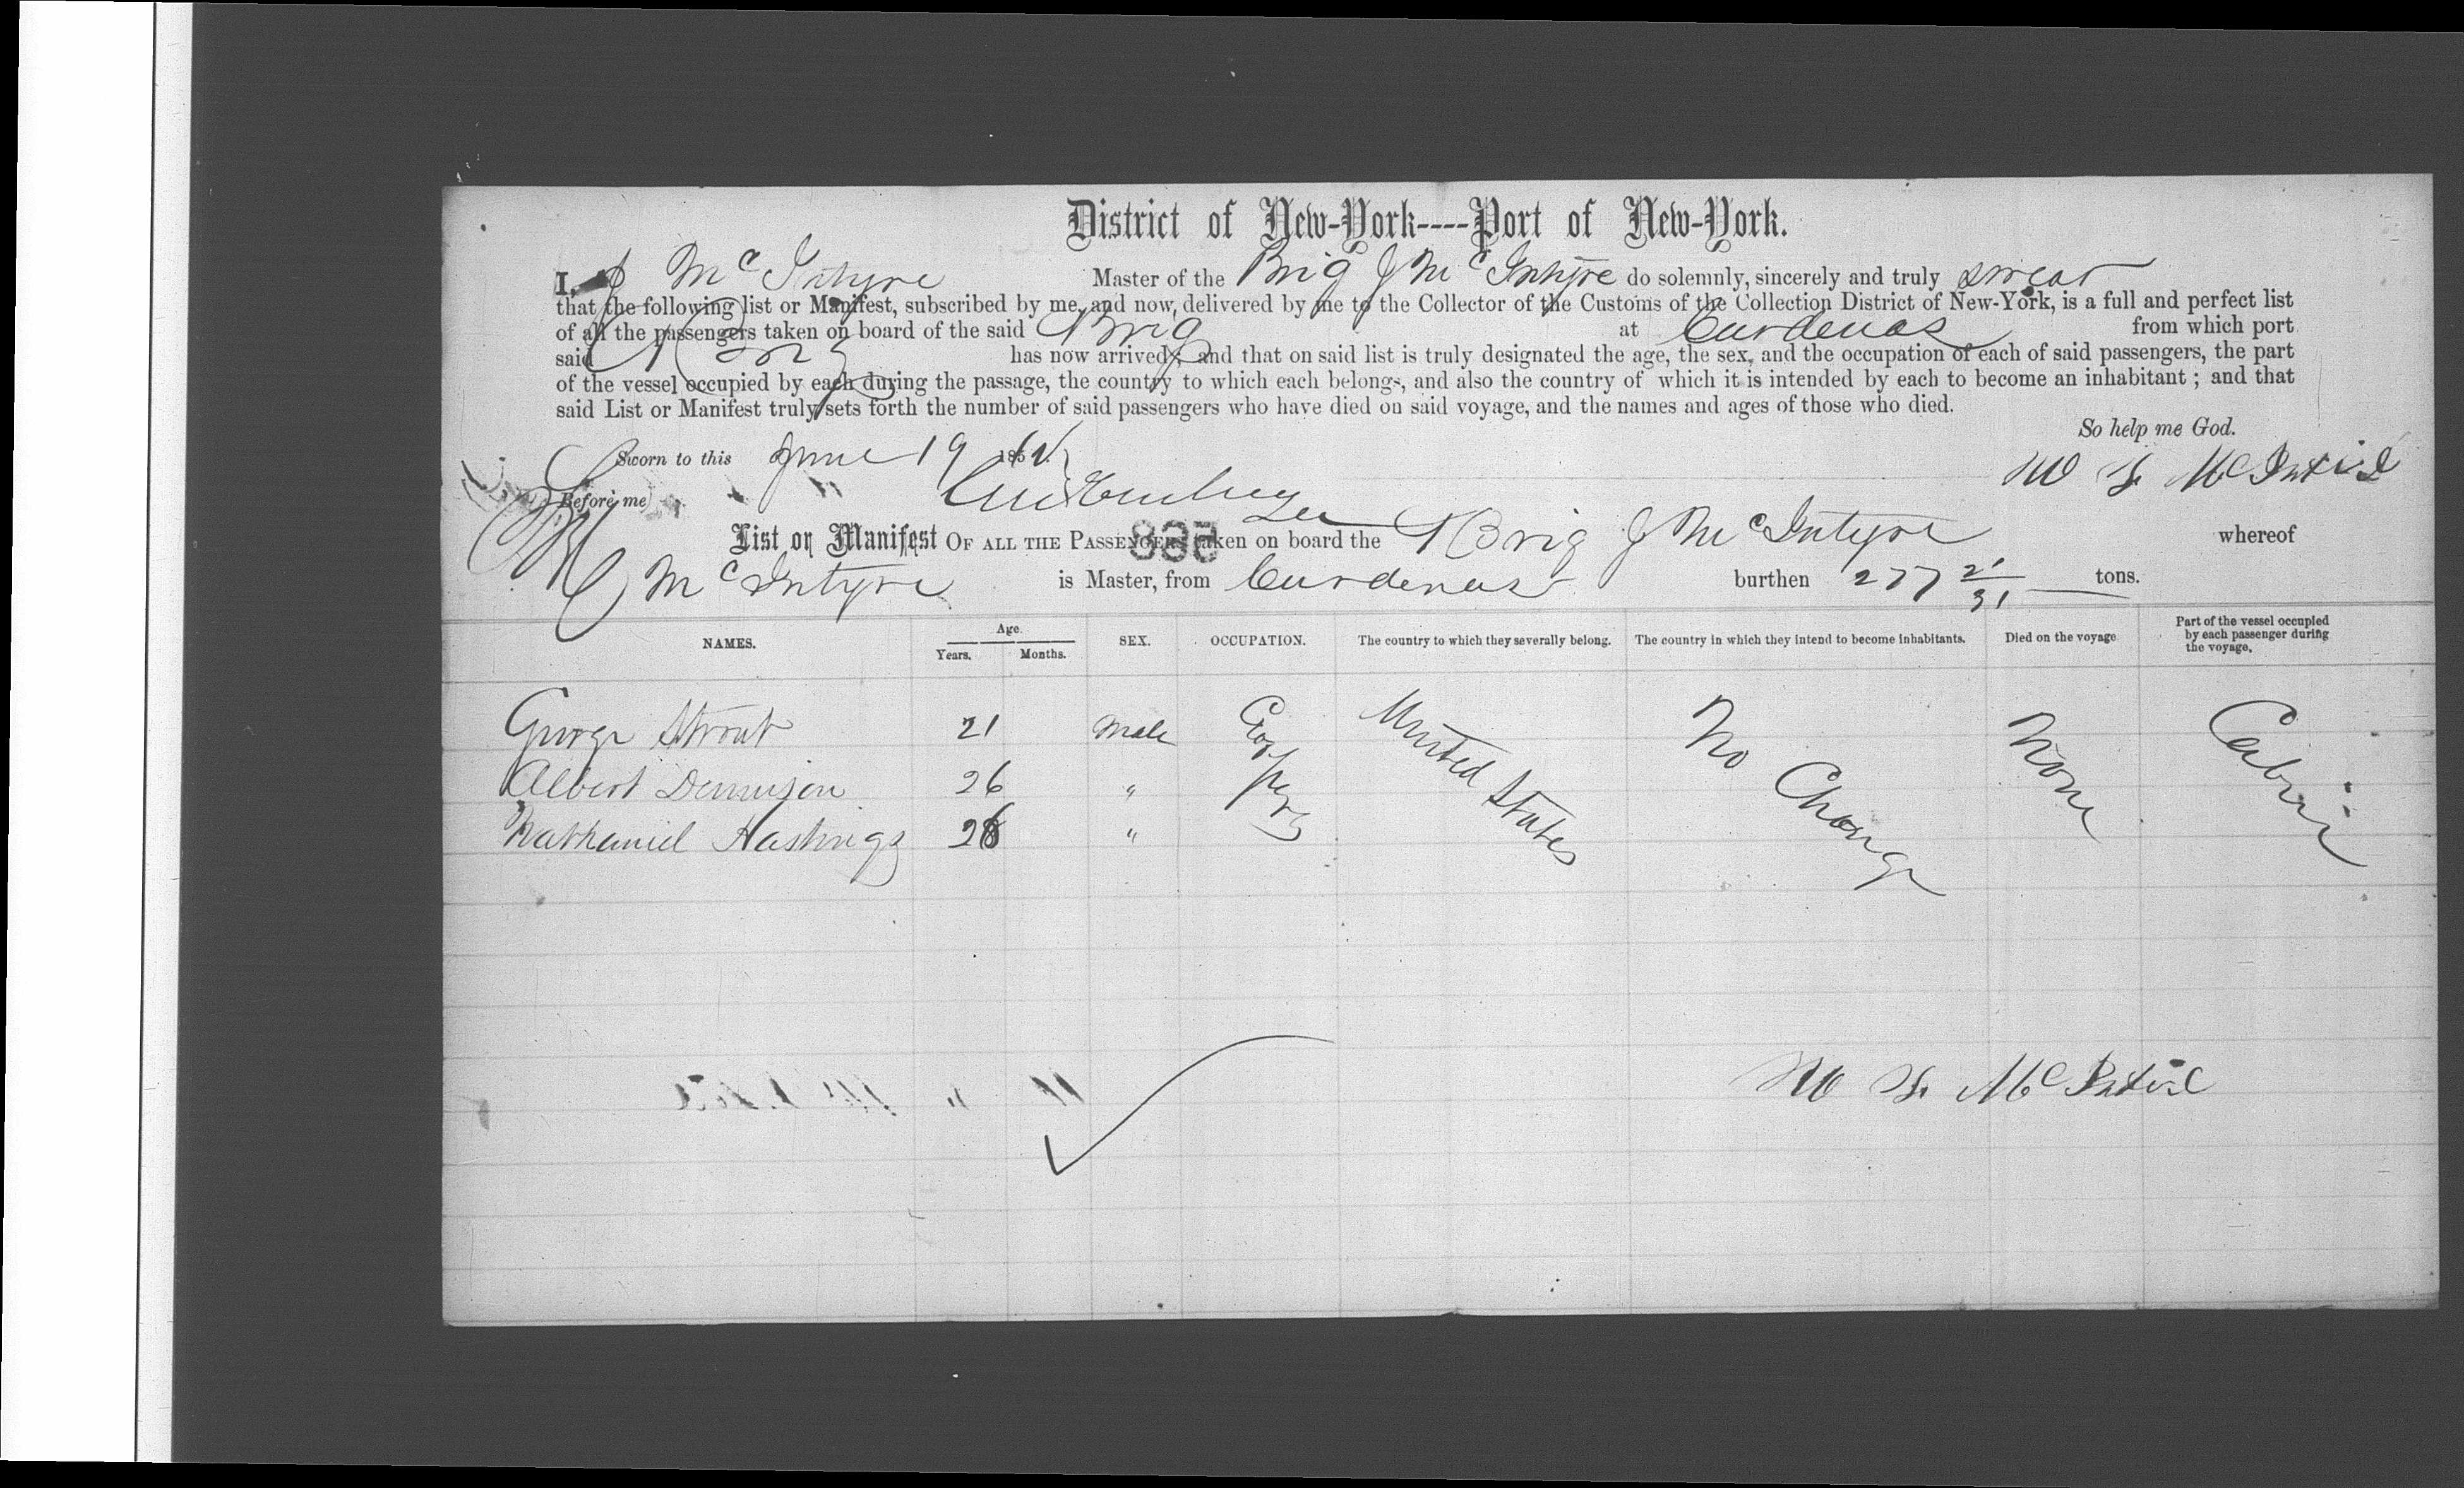 District of New-York----Port of New-York.
I, J McIntyre Master of the Brig J McIntyre do solemnly, sincerely and truly swear
that the following list or Manifest, subscribed by me, and now, delivered by me to the Collector of the Customs of the Collection District of New-York, is a full and perfect list
of all the passengers taken on board of the said Brig at Cardenas from which port
said Brig has now arrived; and that on said list is truly designated the age, the sex, and the occupation of each of said passengers, the part
of the vessel occupied by each during the passage, the country to which each belongs, and also the country of which it is intended by each to become an inhabitant; and that
said List or Manifest truly sets forth the number of said passengers who have died on said voyage, and the names and ages of those who died.
So help me God.
Sworn to this June 19 186
Before me
McIntire
List or Manifest OF ALL THE PASSENGERS taken on board the Brig J McIntyre whereof
835
McIntyre is Master, from Cardenas burthen 277 21/31 tons.
NAMES. Age. Years. Months. SEX. OCCUPATION. The country to which they severally belong. The country in which they intend to become inhabitants. Died on the voyage Part of the vessel occupied by each passenger during the voyage.
George Strout 21 Male Coopers United States No Change None Cabin
Albert Dennison 26 "
Nathaniel Hastings 28 "
McIntire